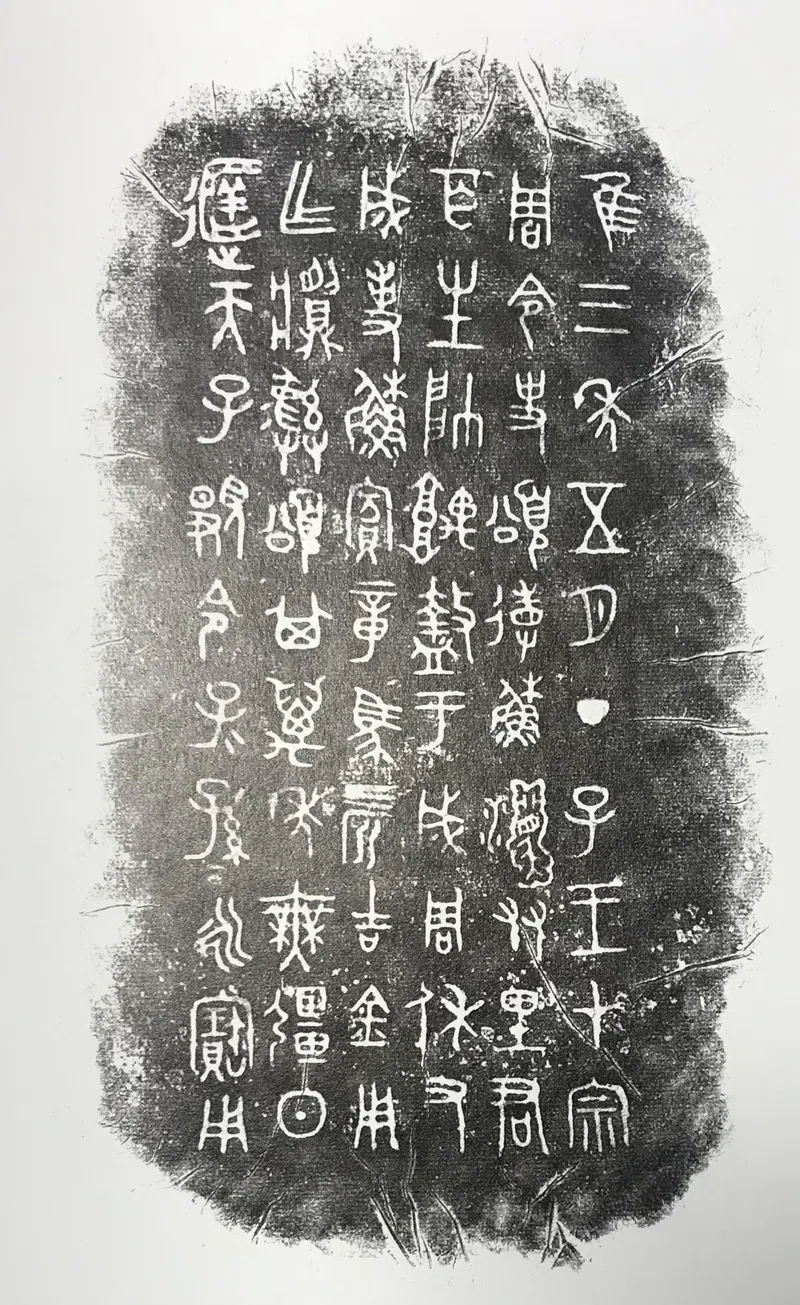 隹三年五月丁巳王才宗
周令史頌省蘇友里君
百生帥盩于成周休又
成事蘇賓章馬四匹吉金用
乍彝頌其萬年無彊日
天子令子子孫孫永寶用